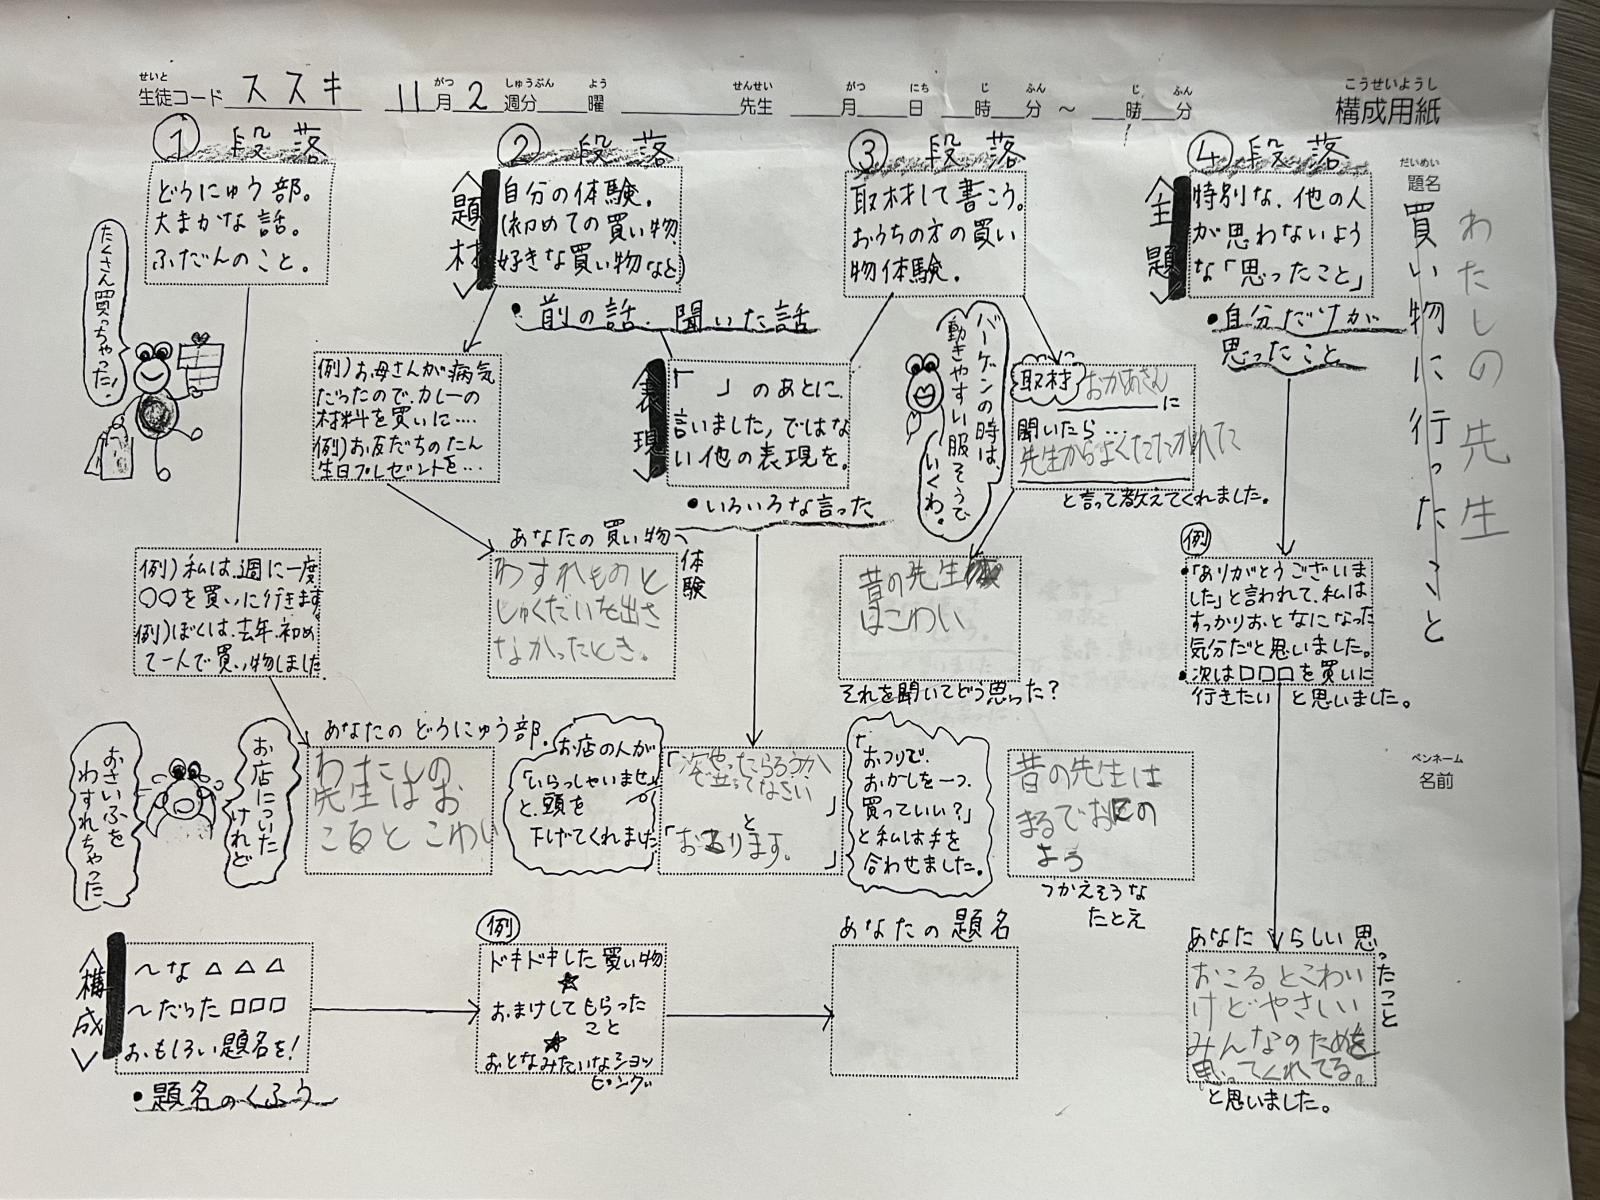 せいと
生徒コード ススキ 11月2週分 曜 先生 月 日 時 分 ～ 時 分
がつ しゅうぶん よう せんせい がつ にち じ ふん じ ふん
こうせいようし
構成用紙
① 段落
どうにゅう部。
大まかな話。
ふだんのこと。
たくさん買っちゃった！
例)私は、週に一度
○○を買いに行きます。
例)ぼくは、去年、初め
て一人で買い物しました。
あなたのどうにゅう部。
わたしの
先生はお
こると こわい
お店についた
けれど
おさいふを
わすれちゃった
② 段落
〈題材〉
自分の体験。
(初めての買い物、
好きな買い物など)
・前の話、聞いた話
例)お母さんが病気
だったので、カレーの
材料を買いに‥‥
例)お友だちのたん
生日プレゼントを‥‥
あなたの買い物
体験
わすれものと
しゅくだいを出さ
なかったとき。
〈表現〉
「 」のあとに、
言いました、ではな
い他の表現を。
・いろいろな言った
お店の人が
「いらっしゃいませ」
と、頭を
下げてくれました
ろうか
立ってなさい
」
と
「おこります。
」
「おつりで、
おかしを一つ、
買っていい？」
と私は手を
合わせました。
③ 段落
取材して書こう。
おうちの方の買い
物体験。
バーゲンの時は、
動きやすい服そうで
いくわ。
取材 おかあさん
に
聞いたら‥‥
先生からよくたたかれた
と言って教えてくれました。
昔の先生
はこわい
それを聞いてどう思った？
昔の先生は
まるでおにの
よう
つかえそうな
たとえ
④ 段落
〈主題〉
特別な、他の人
が思わないよう
な「思ったこと」
・自分だけが
思ったこと
例
・「ありがとうございま
した」と言われて、私は
すっかりおとなになった
気分だと思いました。
・次は□□□を買いに
行きたい と思いました。
あなたらしい思ったこと
おこるとこわい
けどやさしい
みんなのためを
思ってくれてる。
と思いました。
〈構成〉
～な△△△
～だった□□□
おもしろい題名を！
・題名のくふう
例
ドキドキした買い物
☆
おまけしてもらった
こと
☆
おとなみたいなショッ
ピング
あなたの題名
だいめい
題名
買い物に行ったこと
わたしの先生
ペンネーム
名前